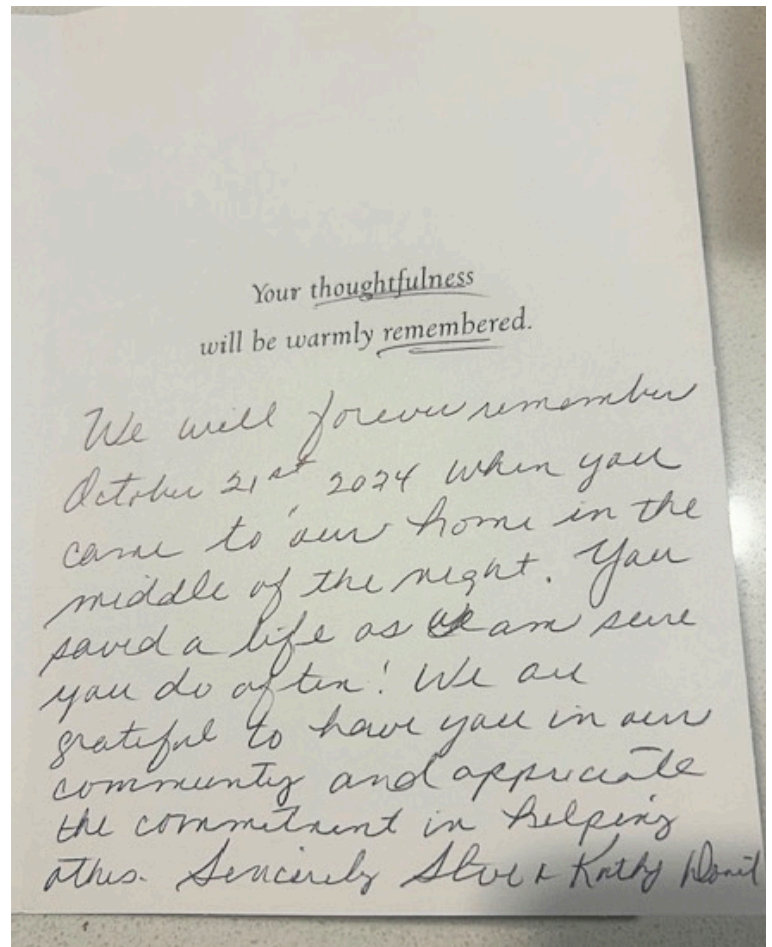 Your thoughtfulness
will be warmly remembered.
We will forever remember
October 21st 2024 when you
came to our home in the
middle of the night. You
saved a life as am sure
you do often! We are
grateful to have you in our
community and appreciate
the commitment in helping
others. Sincerely Steve & Kathy